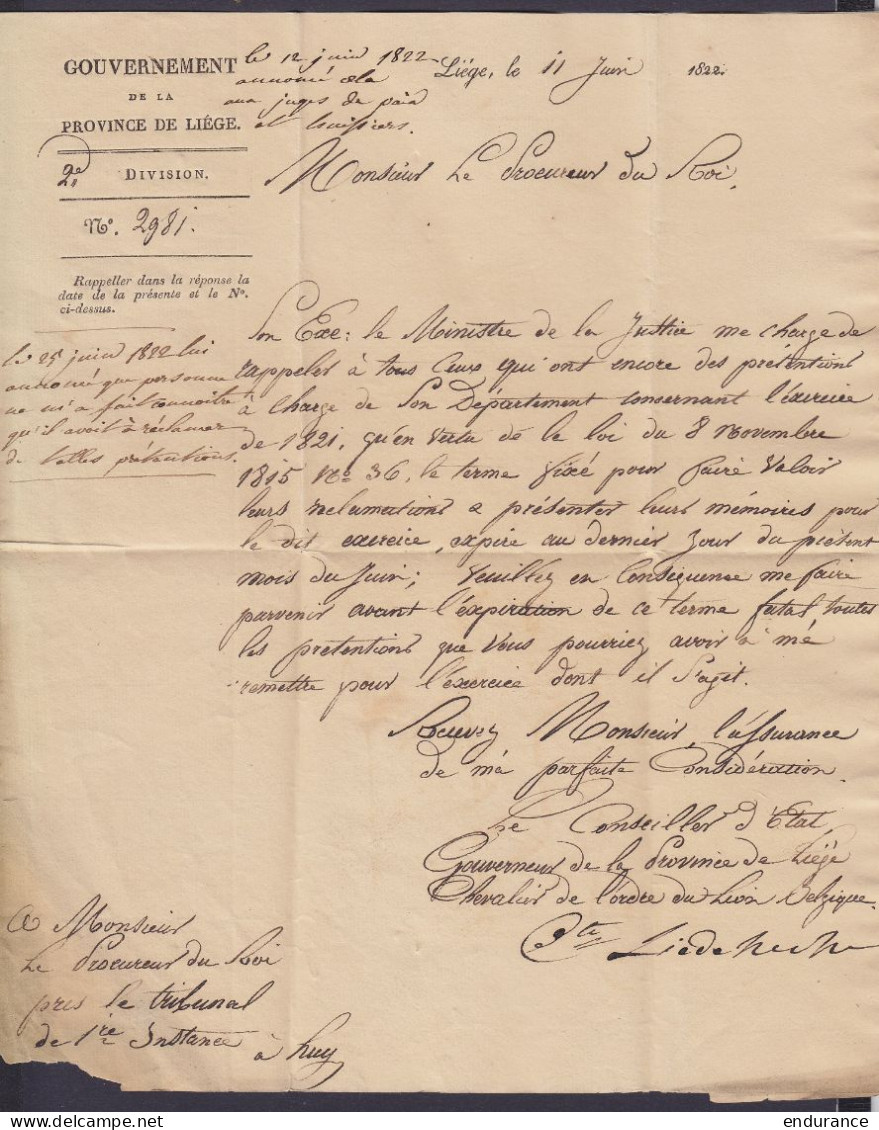 GOUVERNEMENT
DE LA
PROVINCE DE LIÉGE.
2e DIVISION.
N°. 2981.
Rappeller dans la réponse la
date de la présente et le N°.
ci-dessus.
le 12 juin 1822
annoncé cela
aux juges de paix
et huissiers.
Liége, le 11 Juin 1822.
Monsieur Le Procureur du Roi,
le 25 juin 1822 lui
annoncé que personne
ne m'a fait connoitre
qu'il avoit à réclamer
de telles prétentions.
Son Exc: le Ministre de la Justice me charge de
rappeler à tous Ceux qui ont encore des prétentions
à Charge de Son Département consernant l'éxercice
de 1821, qu'en vertu de la loi du 8 Novembre
1815 No 36, le terme fixé pour faire Valoir
leurs reclamations a présenter leurs mémoires pour
le dit exercice, expire au dernier jour du présent
mois du Juin; Veuillez en Conséquence me faire
parvenir avant l'éxpiration de ce terme fatal toutes
les pretentions que Vous pourriez avoir à mé
remettre pour l'éxercice dont il S'agit.
Recevez Monsieur, l'assurance
de ma parfaite Considération.
Le Conseiller d'Etat,
Gouverneur de la Province de Liége
Chevalier de l'ordre du Lion Belgique.
Cte Liedekerke
A Monsieur
Le Procureur du Roi
pres le tribunal
de 1re Instance
à huy
www.delcampe.net
endurance